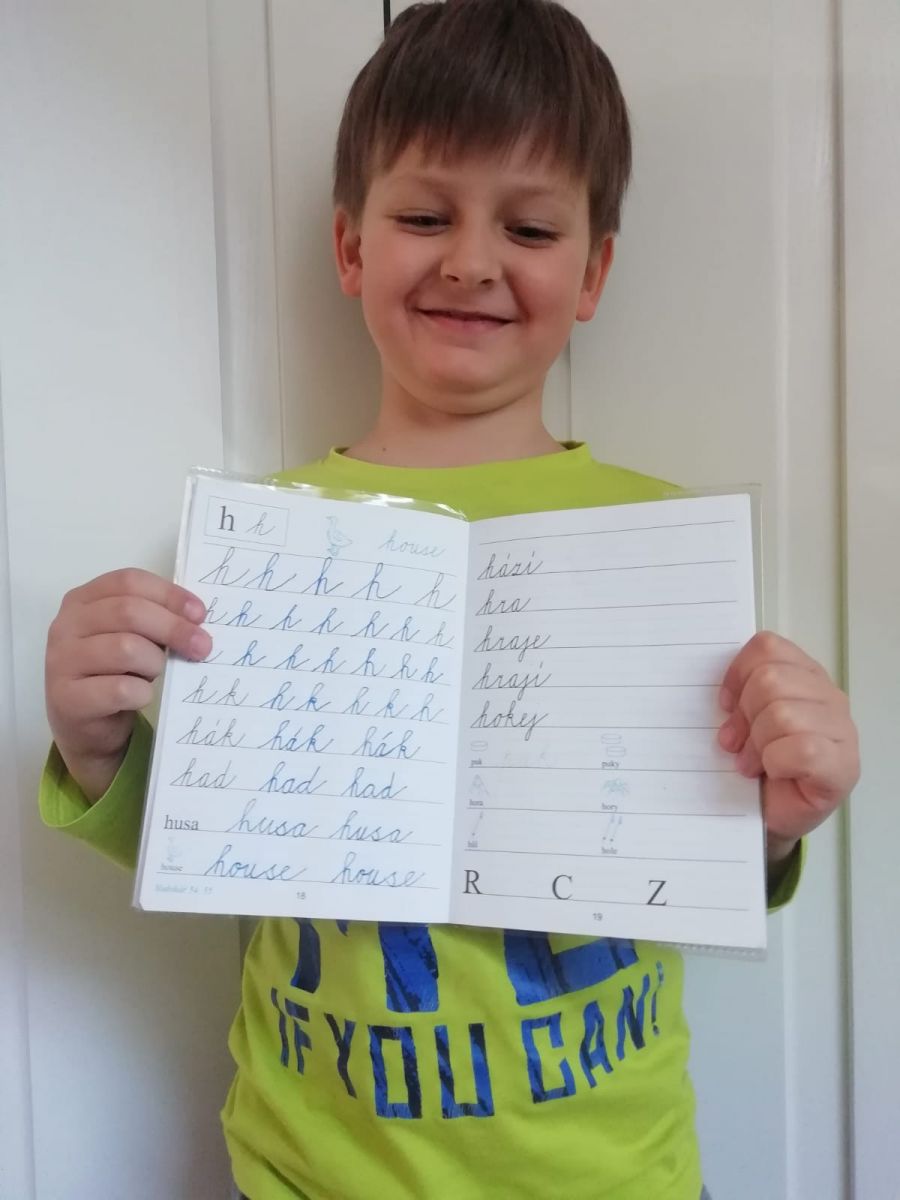 h h house
h h h h h
h h h h h h h
h h h h h h
h k h k h k h
hák hák hák
had had had
husa husa husa
house house house
Slabikář 54, 55
18
hází
hra
hraje
hrají
hokej
puk puk puky
hora hory
hůl hole
R C Z
19
IF YOU CAN!